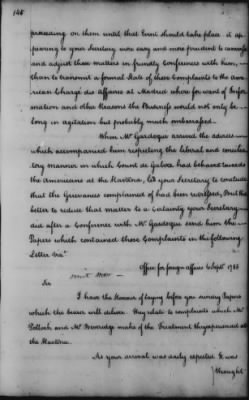 148
proceeding on them until that Event should take place it ap-
pearing to your Secretary more easy and more prudent to
and adjust these matters in friendly Conferences with him,
than to transmit a formal State of these Complaints to the Ame-
rican Chargé des Affaires at Madrid where for want of Infor-
mation and other Reasons the Business would not only be
long in agitation but probably much embarrassed.
When Mr Gardoqui arrived the advices
which accompanied him respecting the liberal and concilia-
tory manner in which Count de Galvez had behaved towards
the Americans at the Havanna, led your Secretary to conclude
that the Grievances complained of had been redressed, But the
better to reduce that matter to a Certainty your Secretary
did after a Conference with Mr Gardoqui send him the
Papers which contained those Complaints in the following
Letter viz.
Office for foreign affairs Sepr 1785
Sir
I have the Honour of laying before you sundry Papers
which the bearer will deliver. They relate to complaints which Mr
Pollock and Mr make of the Treatment they experienced at
the Havanna.
As your arrival was daily expected It was
thought